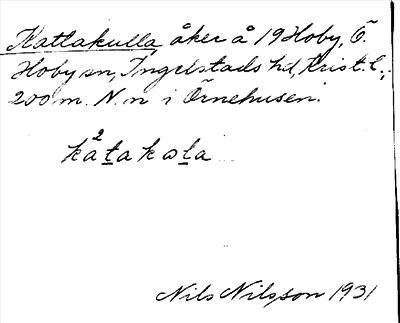 Kattakulla, åker å 19 Hoby, Ö.
Hoby sn, Ingelstads hd, Krist. l.,
200 m. N. n i Örnehusen.
ka²takala
Nils Nilsson 1931